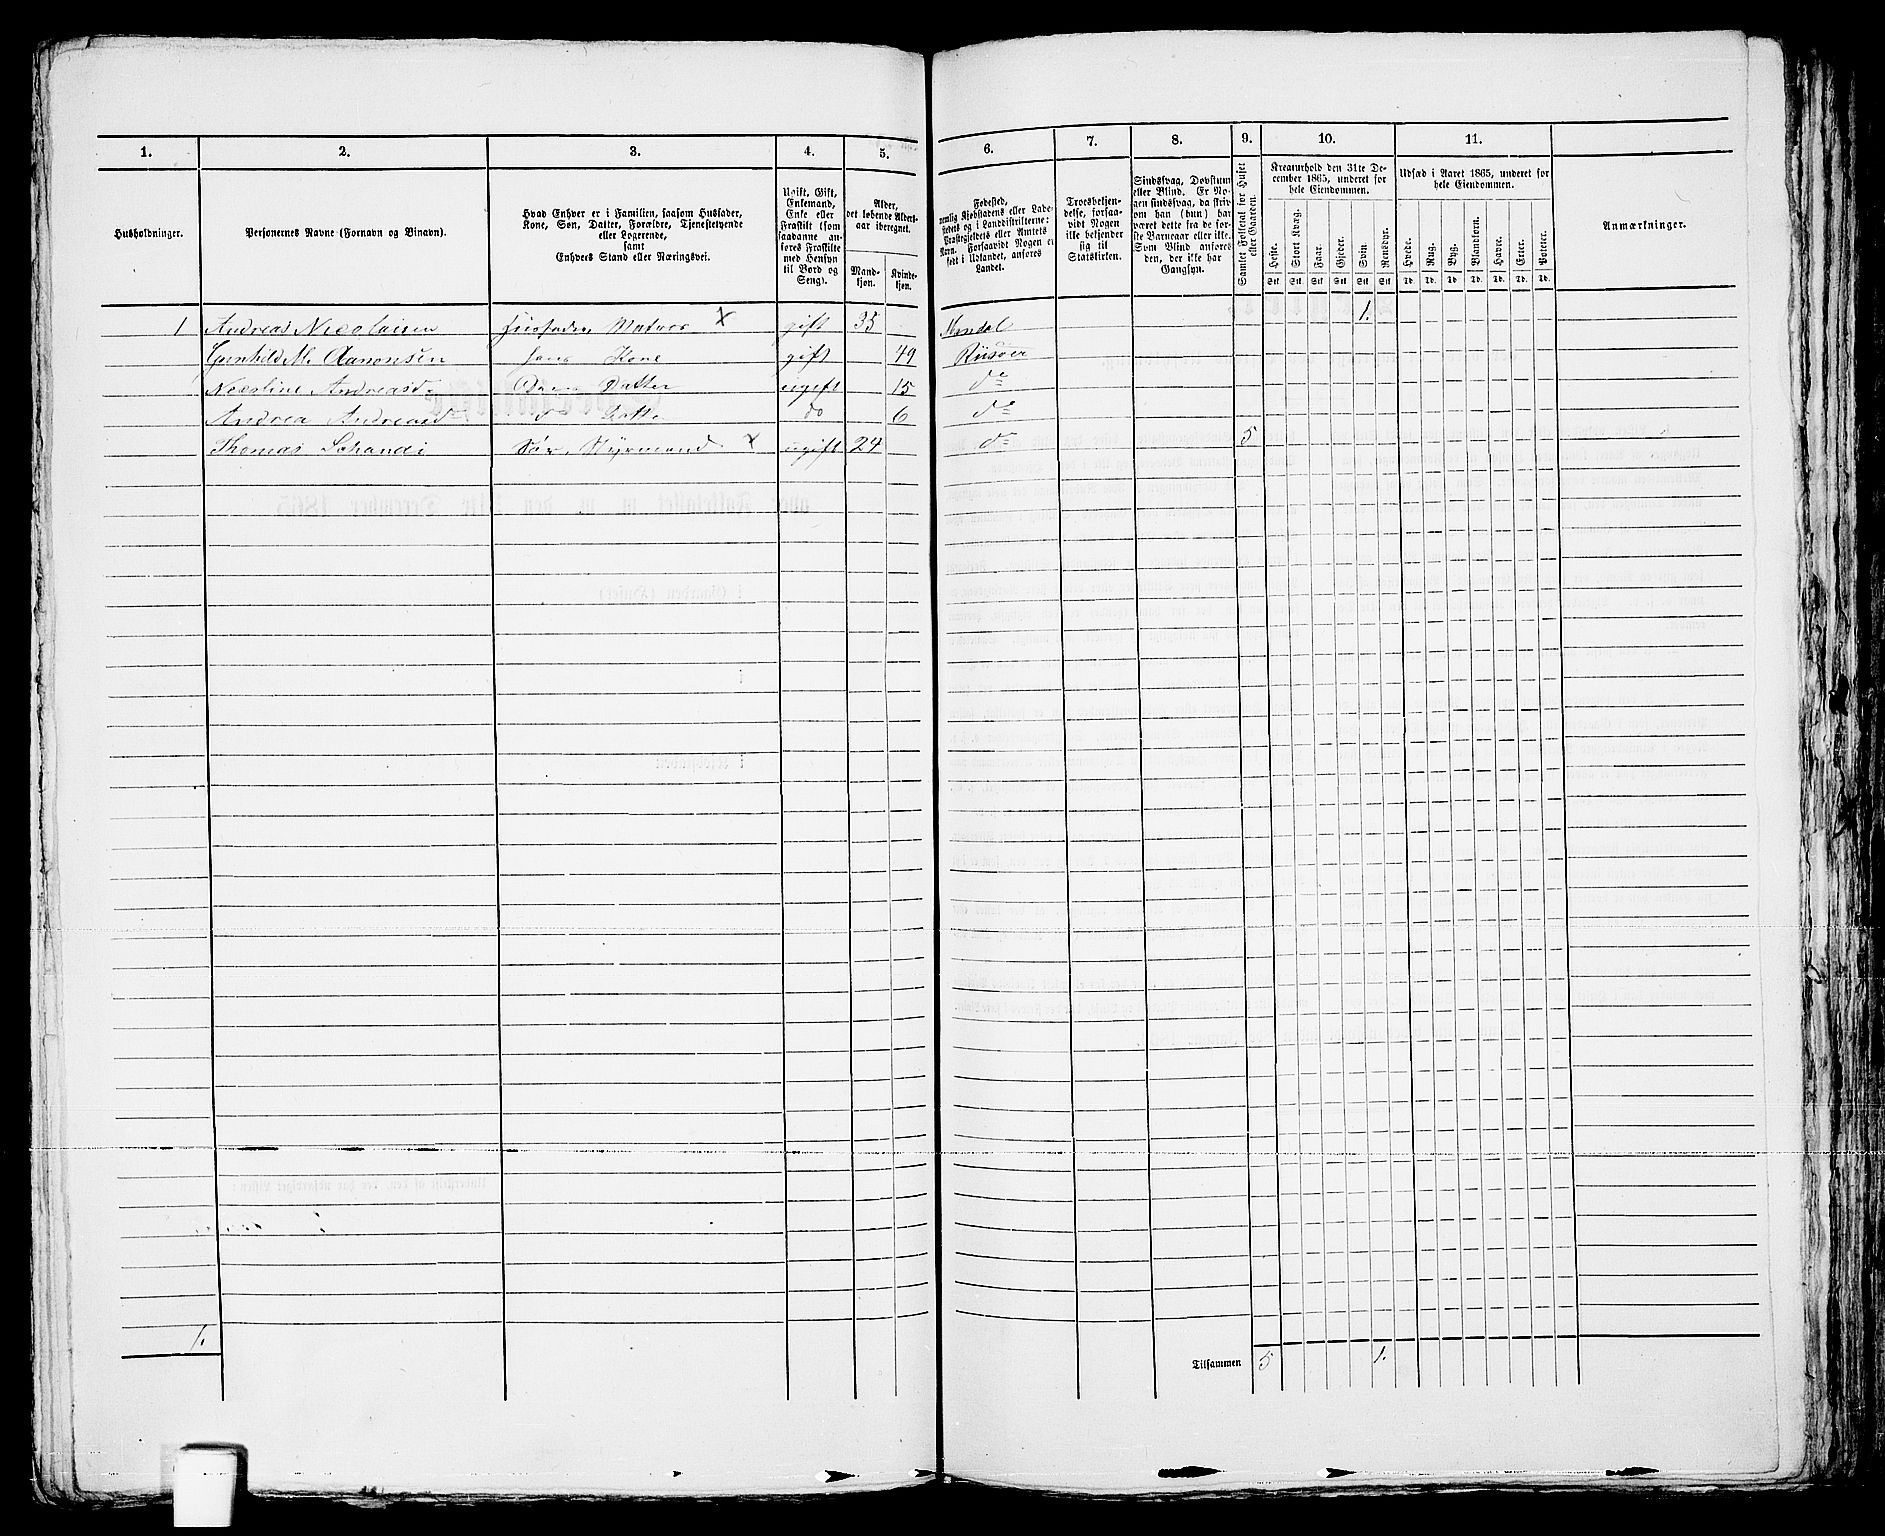 1. 2. 3. 4. 5. 6. 7. 8. 9. 10. 11.
Husholdninger.
Personernes Navne (Fornavn og Binavn).
Hvad Enhver er i Familien, saasom Husfader,
Kone, Søn, Datter, Forældre, Tjenestetyende
eller Logerende,
samt
Enhvers Stand eller Næringsvei.
Ugift, Gift,
Enkemand,
Enke eller
Fraskilt (som
saadanne an-
føres Fraskilte
med Hensyn
til Bord og
Seng).
Alder,
det løbende Alders-
aar iberegnet.
Mand-
kjøn.
Kvinde-
kjøn.
Fødested,
nemlig Kjøbstadens eller Lade-
stedets og i Landdistrikterne:
Præstegjeldets eller Amtets
Navn. Forsaavidt Nogen er
født i Udlandet, anføres
Landet.
Troesbekjen-
delse, forsaa-
vidt Nogen
ikke bekjender
sig til
Statskirken.
Sindssvag, Døvstum
eller Blind. Er No-
gen sindssvag, da skriv
om han (hun) har
været dette fra de før-
ste Barneaar eller ikke.
Som Blind anføres
den, der ikke har
Gangsyn.
Samlet Folketal for Huset
eller Gaarden.
Kreaturhold den 31te De-
cember 1865, underet for
hele Eiendommen.
Heste. Stort Kvæg. Faar. Gjeder. Svin. Rensdyr.
Stk Stk Stk Stk Stk Stk
Udsæd i Aaret 1865, underet for
hele Eiendommen.
Hvede. Rug. Byg. Blandkorn. Havre. Erter. Poteter.
Td. Td. Td. Td. Td. Td. Td.
Anmærkninger.
1 Andreas Nicolaisen Husfader, X gift 35 Mandal 1.
Gunhild M. Aanonsen hans Kone gift 49 Riisøer
Nicoline Andreasd. Datter ugift 15 do
Andrea Andreasd do Datter do 6 do
Thomas Schandi Styrmand X ugift 24 do 5
1.
Tilsammen 5 1.